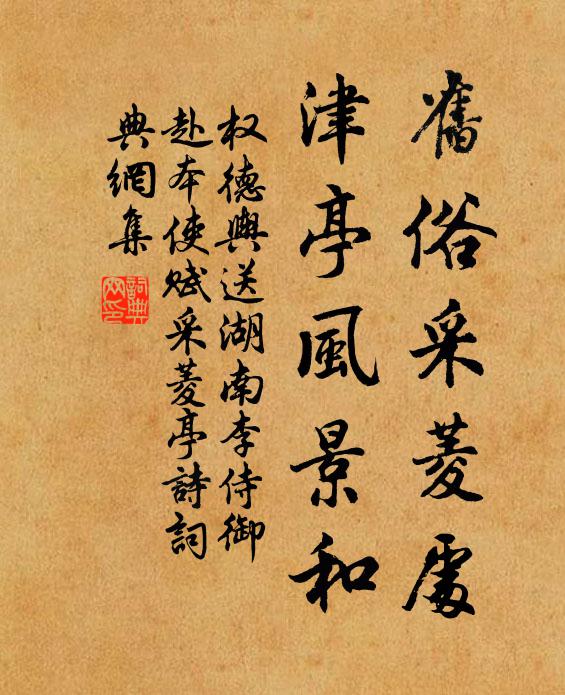 舊俗采菱處
津亭風景和
权德輿送湖南李侍御
赴本使賦采菱亭詩詞
典網集
詞典網印